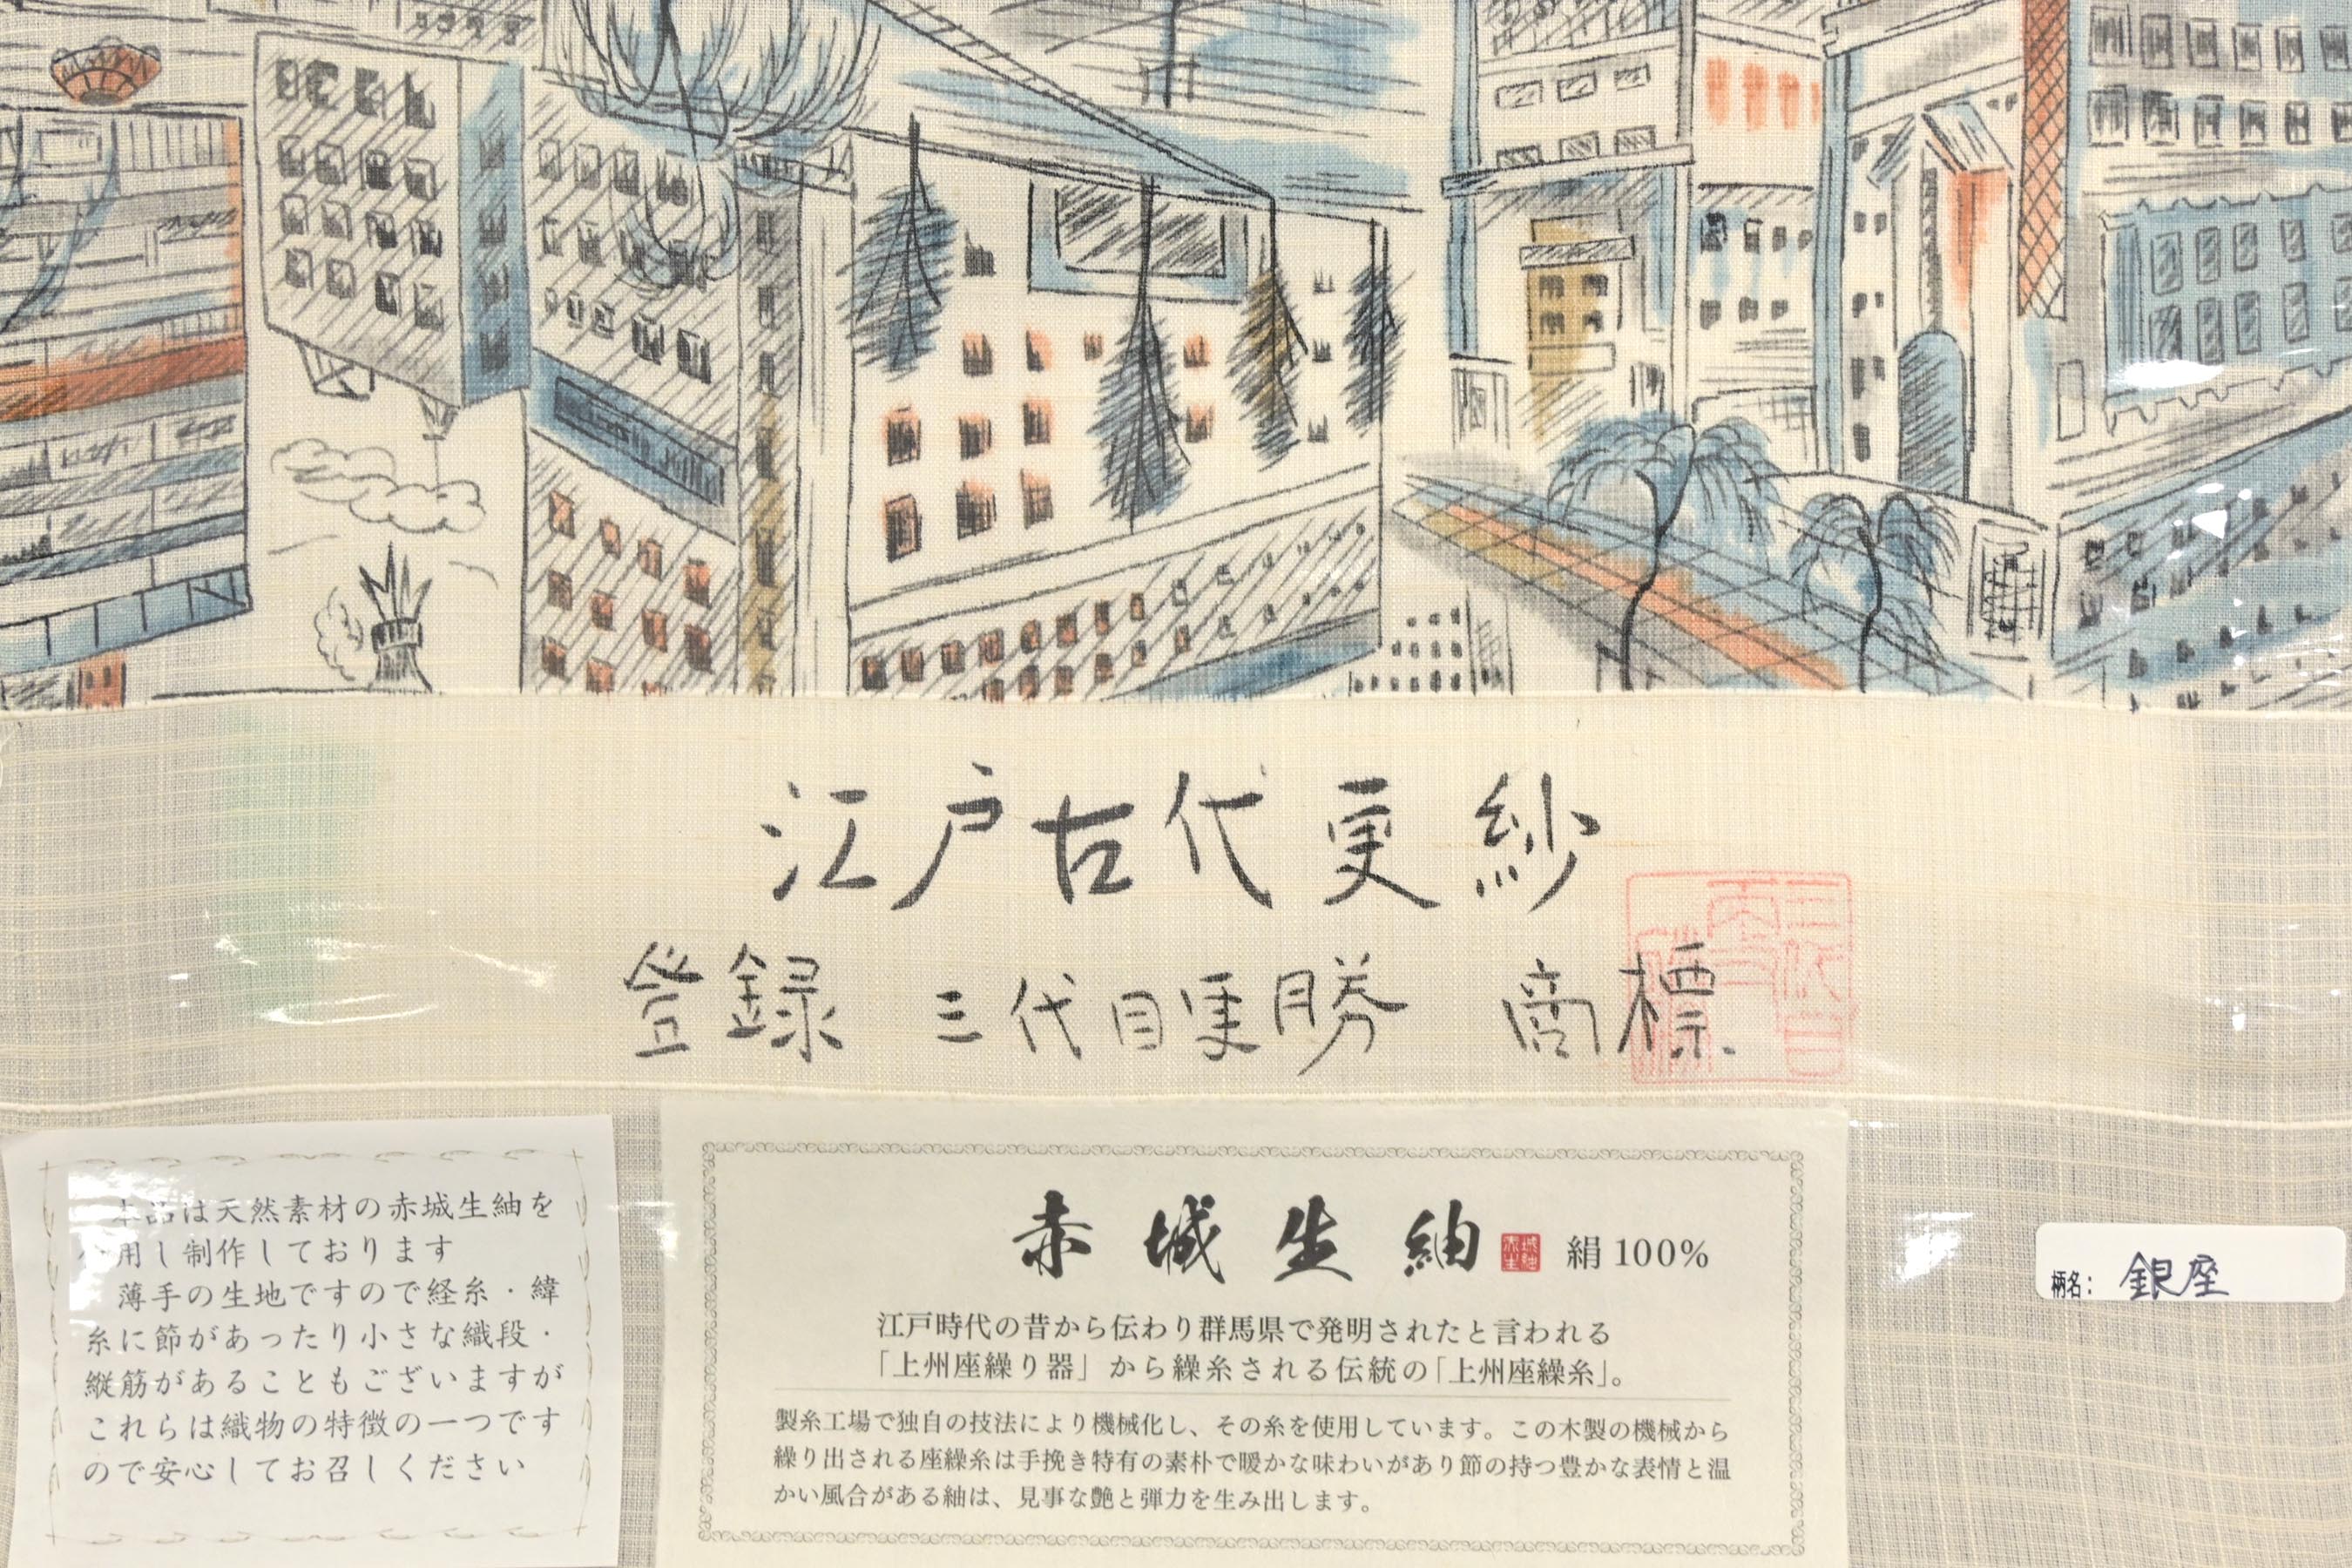 江戸古代更紗
登録 三代目更勝 商標
本品は天然素材の赤城生紬を
用し制作しております
薄手の生地ですので経糸・緯
糸に節があったり小さな織段・
縦筋があることもございますが
これらは織物の特徴の一つです
ので安心してお召しください
赤城生紬 絹100%
江戸時代の昔から伝わり群馬県で発明されたと言われる
「上州座繰り器」から繰糸される伝統の「上州座繰糸」。
製糸工場で独自の技法により機械化し、その糸を使用しています。この木製の機械から
繰り出される座繰糸は手挽き特有の素朴で暖かな味わいがあり節の持つ豊かな表情と温
かい風合がある紬は、見事な艶と弾力を生み出します。
柄名: 銀座